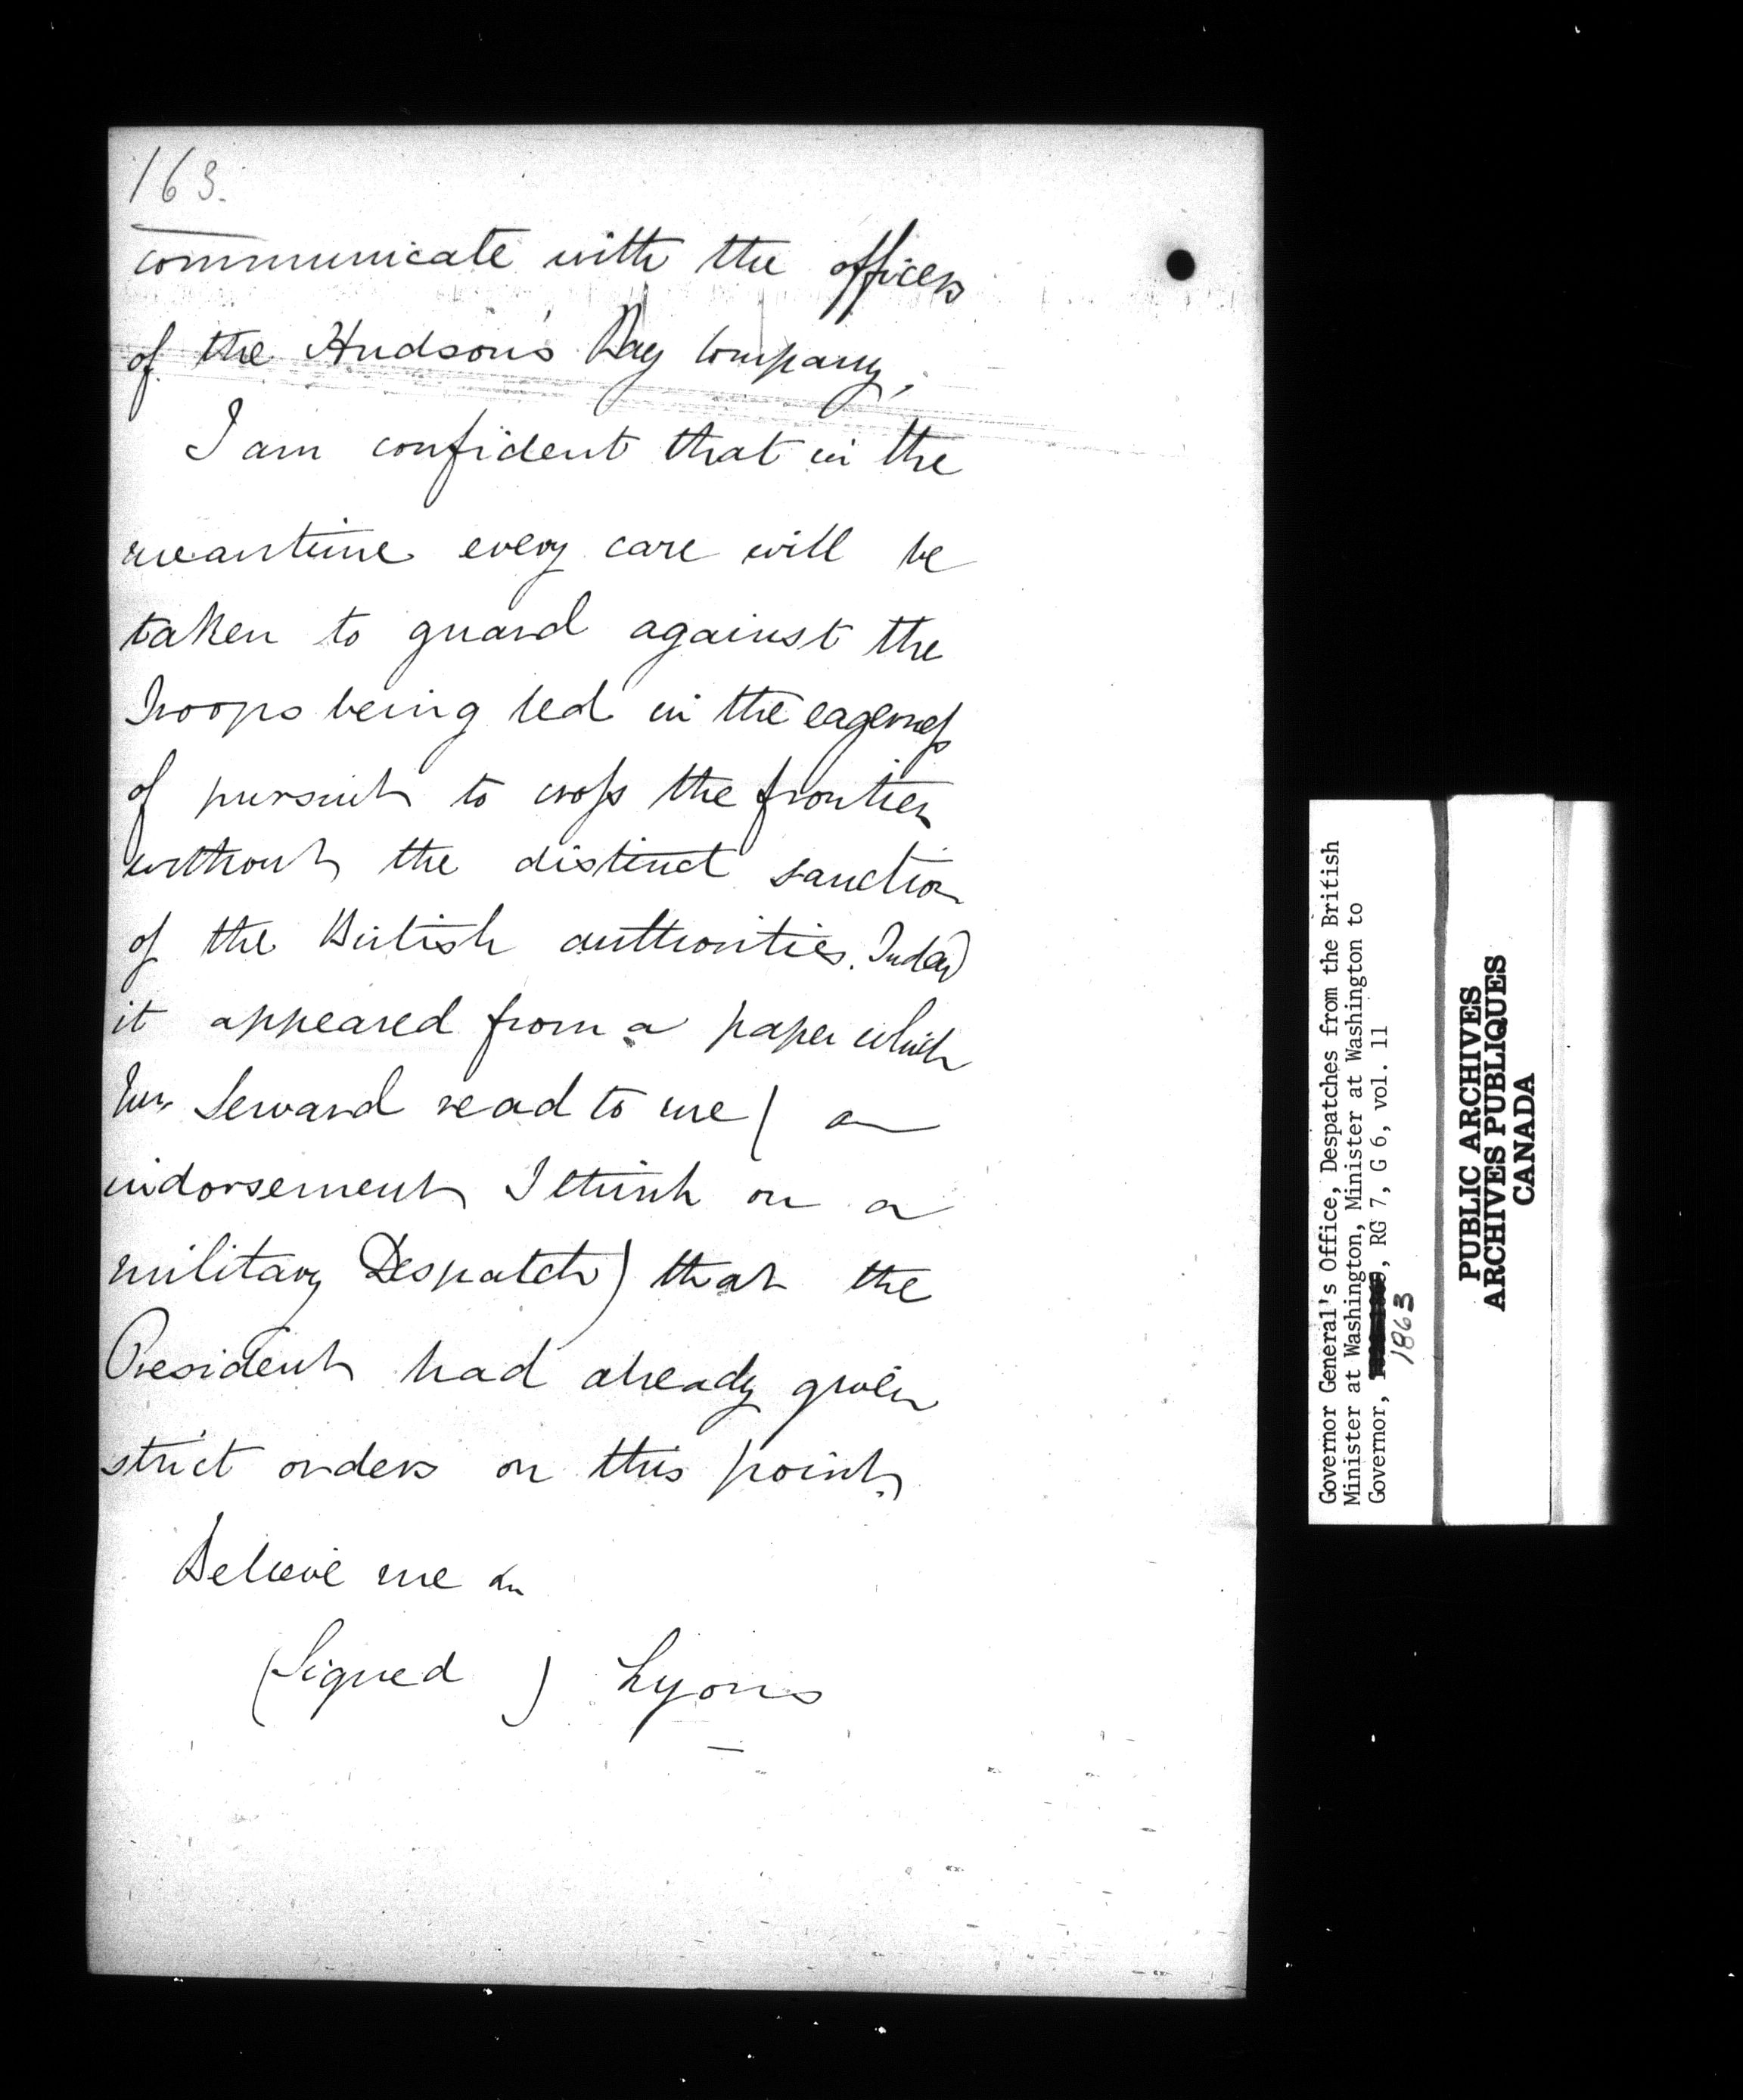 163.
communicate with the officers
of the Hudson's Bay Company,
I am confident that in the
meantime every care will be
taken to guard against the
Troops being led in the eagerness
of pursuit to cross the frontier
without the distinct sanction
of the British authorities. Indeed
it appeared from a paper which
Mr. Seward read to me ( an
indorsement I think on a
military Despatch) that the
President had already given
strict orders on this point.
Believe me
(Signed ) Lyons
Governor General's Office, Despatches from the British
Minister at Washington, Minister at Washington to
Governor, , RG 7, G 6, vol. 11
1863
PUBLIC ARCHIVES
ARCHIVES PUBLIQUES
CANADA